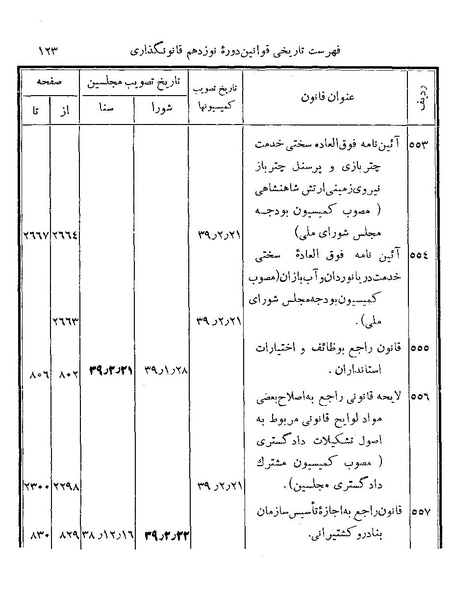 فهرست تاریخی قوانین دورهٔ نوزدهم قانونگذاری ۱۲۳
ردیف عنوان قانون تاریخ تصویب کمیسیونها تاریخ تصویب مجلسین صفحه
شورا سنا از تا
۵۵۳ آئین‌نامه فوق‌العاده سختی خدمت
چتربازی و پرسنل چترباز
نیروی‌زمینی‌ارتش شاهنشاهی
( مصوب کمیسیون بودجه
مجلس شورای ملی) ۳۹٫۲٫۲۱ ۲۶۶۴ ۲۶۶۷
۵۵۴ آئین نامه فوق العادهٔ سختی
خدمت‌دریانوردان‌وآب‌بازان(مصوب
کمیسیون‌بودجه‌مجلس شورای
ملی). ۳۹٫۲٫۲۱ ۲۶۶۳
۵۵۵ قانون راجع بوظائف و اختیارات
استانداران . ۳۹٫۱٫۲۸ ۳۹٫۲٫۲۱ ۸۰۲ ۸۰۶
۵۵۶ لایحه قانونی راجع به‌اصلاح‌بعضی
مواد لوایح قانونی مربوط به
اصول تشکیلات دادگستری
( مصوب کمیسیون مشترك
دادگستری مجلسین). ۳۹٫۲٫۲۱ ۲۲۹۸ ۲۳۰۰
۵۵۷ قانون‌راجع به‌اجازهٔ تأسیس‌سازمان
بنادروکشتیرانی. ۳۹٫۲٫۲۲ ۳۸٫۱۲٫۱۶ ۸۲۹ ۸۳۰